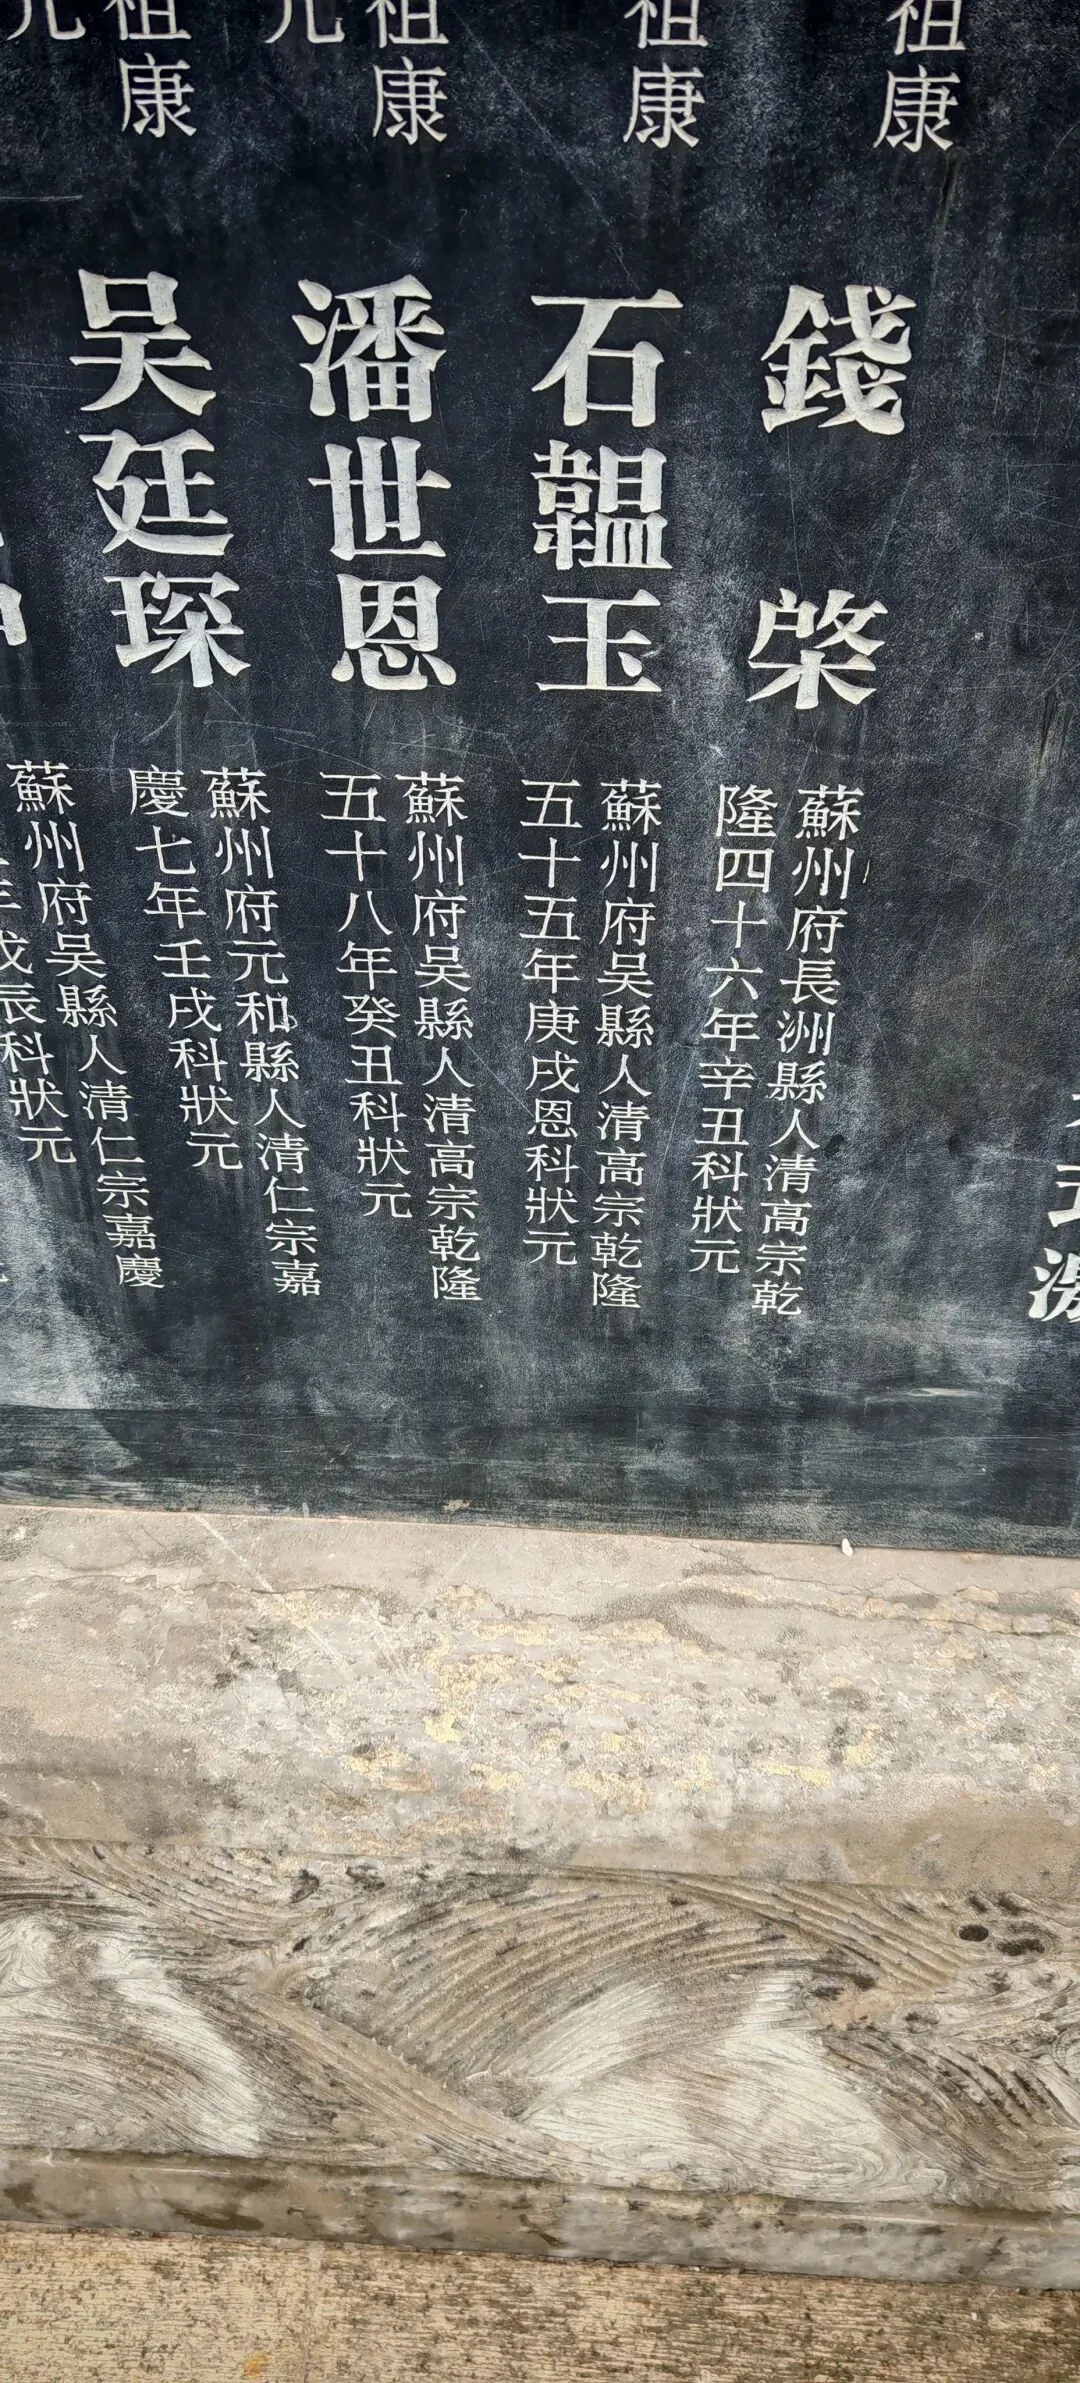 祖康
祖康
祖康
元
祖康
元
錢棨
蘇州府長洲縣人清高宗乾
隆四十六年辛丑科狀元
石韞玉
蘇州府吴縣人清高宗乾隆
五十五年庚戌恩科狀元
潘世恩
蘇州府吴縣人清高宗乾隆
五十八年癸丑科狀元
吴廷琛
蘇州府元和縣人清仁宗嘉
慶七年壬戌科狀元
蘇州府吴縣人清仁宗嘉慶
年戊辰科狀元